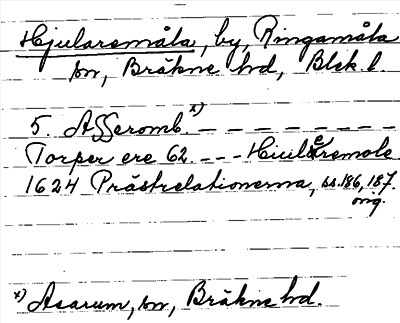 Hjularemåla, by, Ringamåla
sn, Bräkne hd, Blek. l.
5. Asseromb. x) — — — — — —
Torper ere 62. — — — Hiuileremole
1624 Prästrelationerna, ss. 186, 187.
orig.
x) Asarum, sn, Bräkne hd.